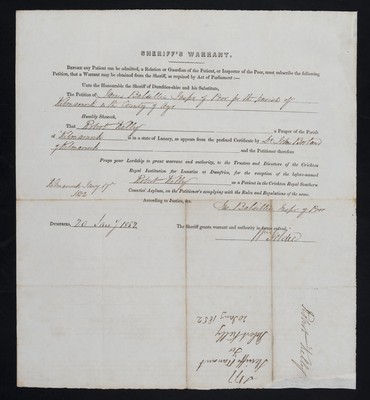 SHERIFF'S WARRANT.
BEFORE any Patient can be admitted, a Relation or Guardian of the Patient, or Inspector of the Poor, must subscribe the following
Petition, that a Warrant may be obtained from the Sheriff, as required by Act of Parliament:—
Unto the Honourable the Sheriff of Dumfries-shire and his Substitute,
The Petition of James Inspr of Poor for the parish of
Kilmarnock in the County of Ayr
Humbly Sheweth,
That Robert Kelly a Pauper of the Parish
of Kilmarnock is in a state of Lunacy, as appears from the prefixed Certificate by Dr John
of Kilmarnock and the Petitioner therefore
Prays your Lordship to grant warrant and authority, to the Trustees and Directors of the Crichton
Royal Institution for Lunatics at Dumfries, for the reception of the before-named
Robert Kelly as a Patient in the Crichton Royal Southern
Counties' Asylum, on the Petitioner's complying with the Rules and Regulations of the same.
Kilmarnock Jany
1852
According to Justice, &c.
Inspr of Poor
DUMFRIES, 20 Jany 1852 The Sheriff grants warrant and authority as above craved,
Robert Kelly
Sheriffs Warrant
for
Robert Kelly
20 Jany 1852